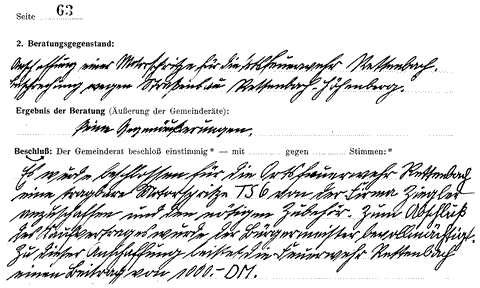 Seite 63
2. Beratungsgegenstand:
Anschaffung einer Motorspritze für die Ortsfeuerwehr Rettenbach.
Besprechung wegen Straßenbau Rettenbach-Höhenberg.
Ergebnis der Beratung (Äußerung der Gemeinderäte):
Keine Gegenäußerungen.
Beschluß: Der Gemeinderat beschloß einstimmig * — mit gegen Stimmen: *
Es wurde beschlossen für die Ortsfeuerwehr Rettenbach
eine tragbare Motorspritze TS 6 von der Firma Ziegler
anzuschaffen und den nötigen Zubehör. Zum Abschluß
des Kaufvertrages wurde der Bürgermeister bevollmächtigt.
Zu dieser Anschaffung leistet die Feuerwehr Rettenbach
einen Beitrag von 1000.- DM.